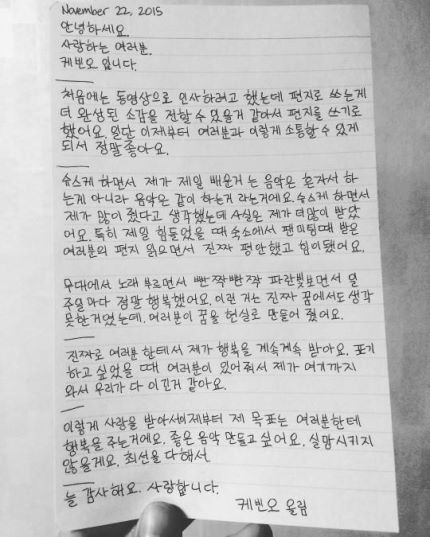 November 22, 2015
안녕하세요.
사랑하는 여러분.
케빈오 입니다.
처음에는 동영상으로 인사하려고 했는데 편지로 쓰는게
더 완성된 소감을 전할 수 있을거 같아서 편지를 쓰기로
했어요. 일단 이제부터 여러분과 이렇게 소통할 수 있게
되서 정말좋아요.
슈스케 하면서 제가 제일 배운거 는 음악은 혼자서 하
는게 아니라 음악은 같이 하는거 라는거에요. 슈스케 하면서
제가 많이 줬다고 생각했는데 사실은 제가 더많이 받았
어요. 특히 제일 힘들었을 때 숙소에서 팬미팅때 받은
여러분의 편지 읽으면서 진짜 평안했고 힘이됐어요.
무대에서 노래 부르면서 빤짝빤짝 파란빛보면서 일
주일마다 정말 행복했어요. 이런 거는 진짜 꿈에서도 생각
못한거였는데. 여러분이 꿈을 현실로 만들어 줬어요.
진짜로 여러분 한테서 제가 행복을 계속계속 받아요. 포기
하고 싶었을 때 여러분이 있어줘서 제가 여기까지
와서 우리가 다 이긴거 같아요.
이렇게 사랑을 받아서 이제부터 제 목표는 여러분한테
행복을 주는거에요. 좋은 음악 만들고 싶어요. 실망시키지
않을게요. 최선을 다해서.
늘 감사해요. 사랑합니다.
케빈오 올림